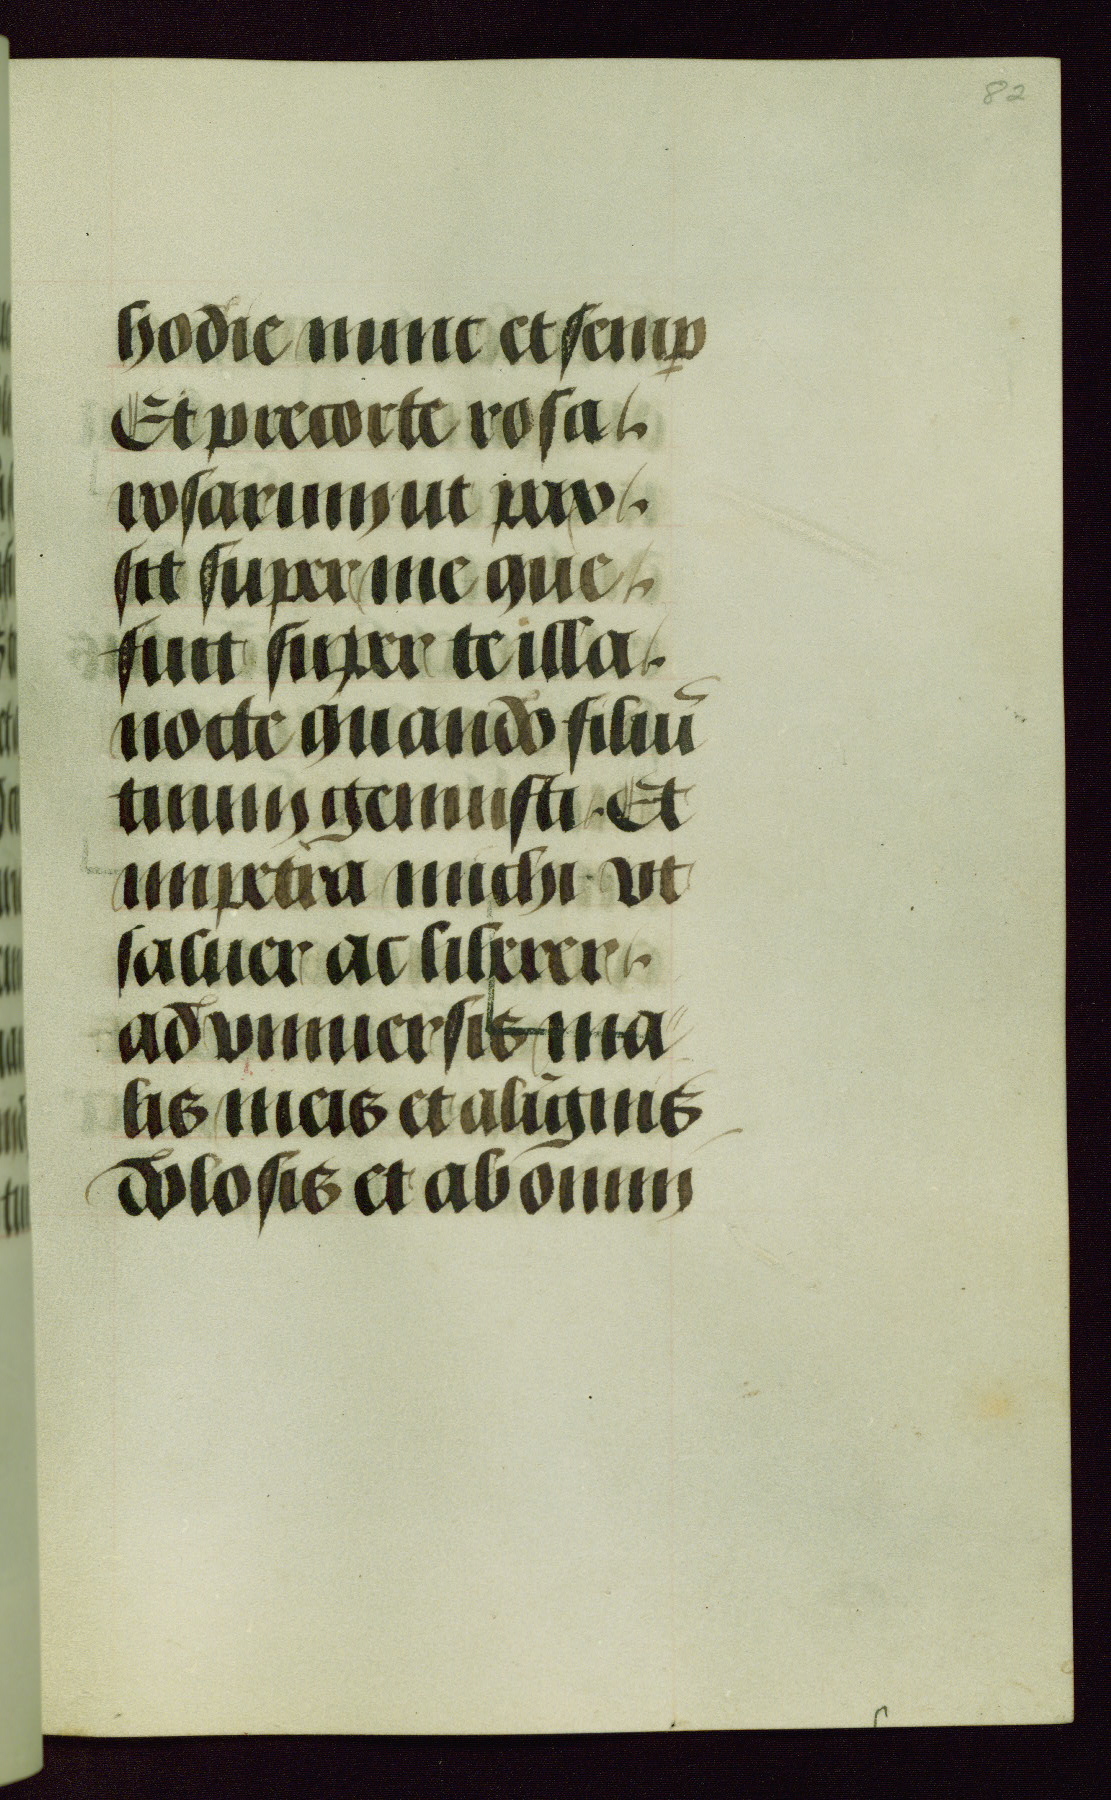 82
hodie nunc et semꝑ
Et precor te rosa
rosarum ut pax
sit super me que
fuit super te illa
nocte quando filiū
tuum genuisti. Et
impetra michi vt
saluer ac liberer
ad vniuersis ma
lis meis et
dolosis et ab omni